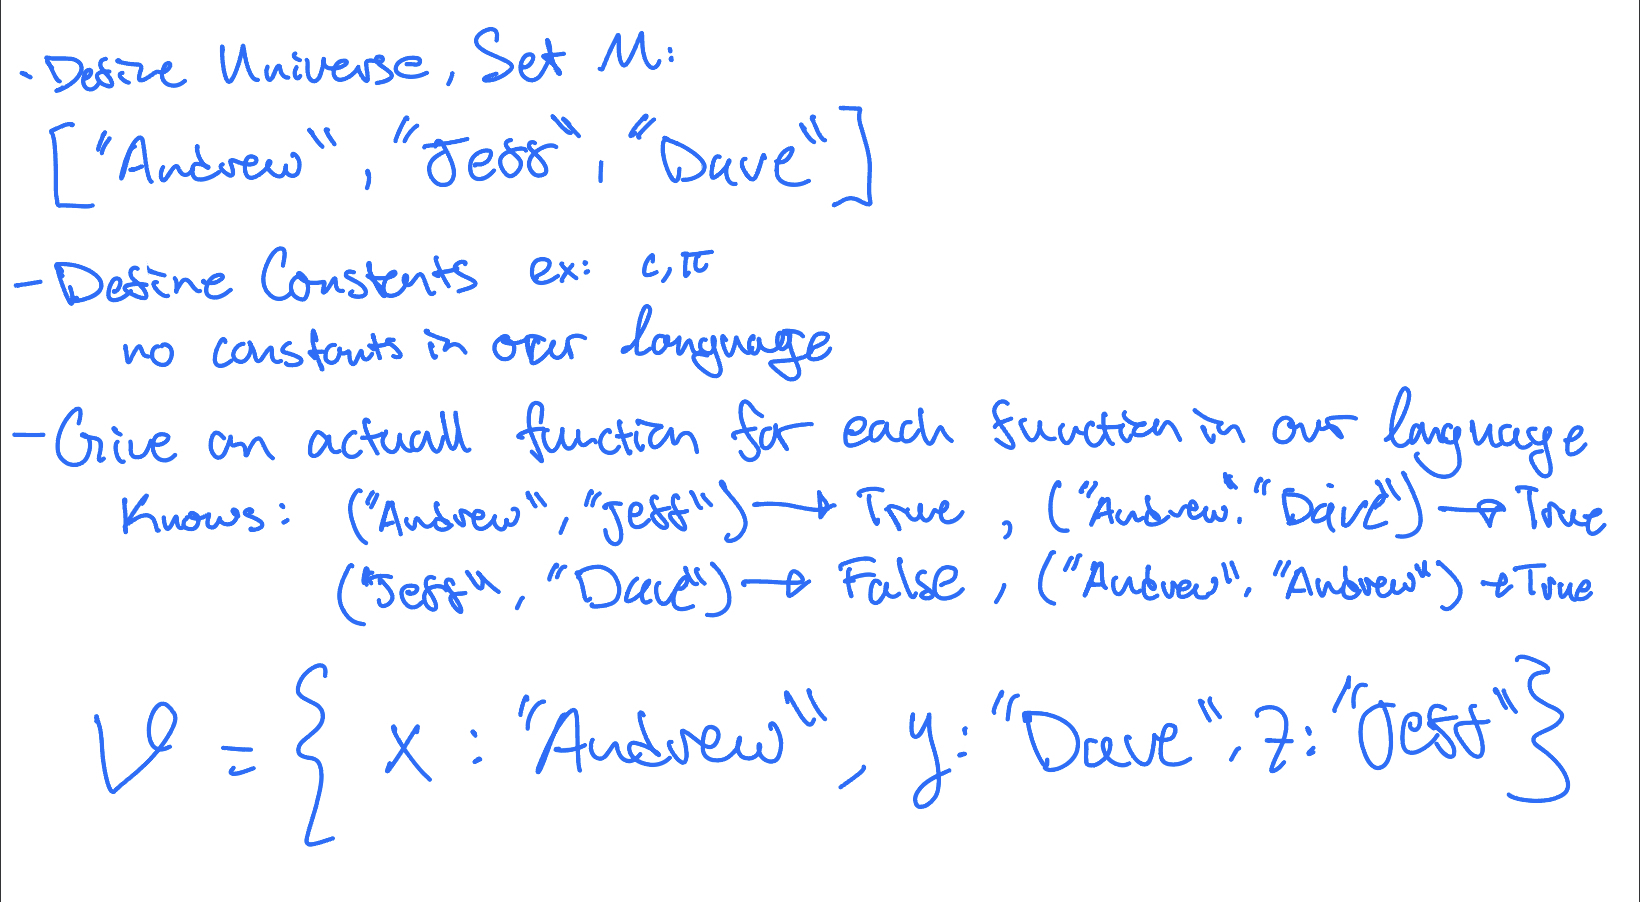 - Define Universe, Set M:
["Andrew", "Jeff", "Dave"]
- Define Constants ex: c, π
no constants in our language
- Give an actuall function for each function in our language
Knows: ("Andrew", "Jeff") → True, ("Andrew". "Dave") → True
("Jeff", "Dave") → False, ("Andrew", "Andrew") → True
V = { x : "Andrew", y: "Dave", z: "Jeff" }